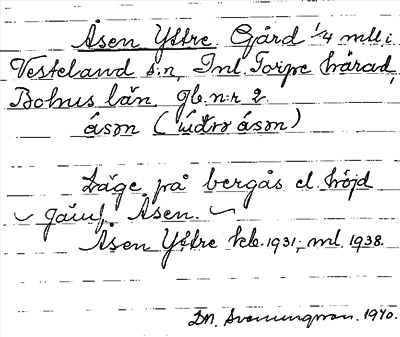 Åsen Yttre Gård 1/4 mtl. i
Vesteland s:n, Inl. Torpe härad,
Bohus län. gb. n:r 2.
åsən ( åsən)
Läge på bergås el. höjd
jämf. Åsen.
Åsen Yttre kb. 1931, ml. 1938.
DN. Svenningsson. 1940.